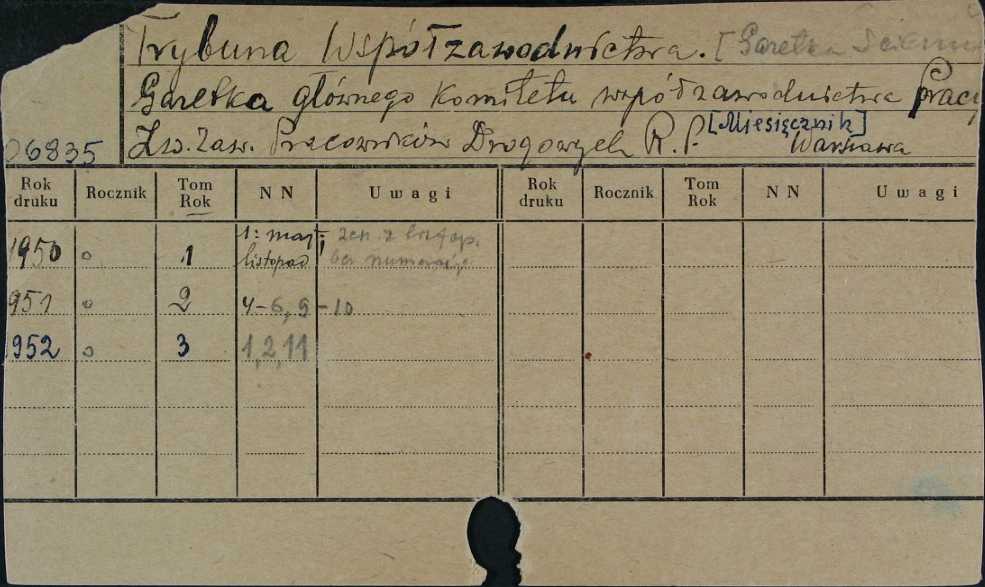 Trybuna Współzawodnictwa. [Gazetka Ścienna
Gazetka głównego Komitetu współzawodnictwa Pracy
Zw. Zaw. Pracowników Drogowych R.P. [Miesięcznik]
06835 Warszawa
Rok druku Rocznik Tom Rok NN Uwagi Rok druku Rocznik Tom Rok NN Uwagi
1950 o 1 1: maj;
listopad bez
951 o 2 4-6, 9-10
1952 o 3 1,2,11